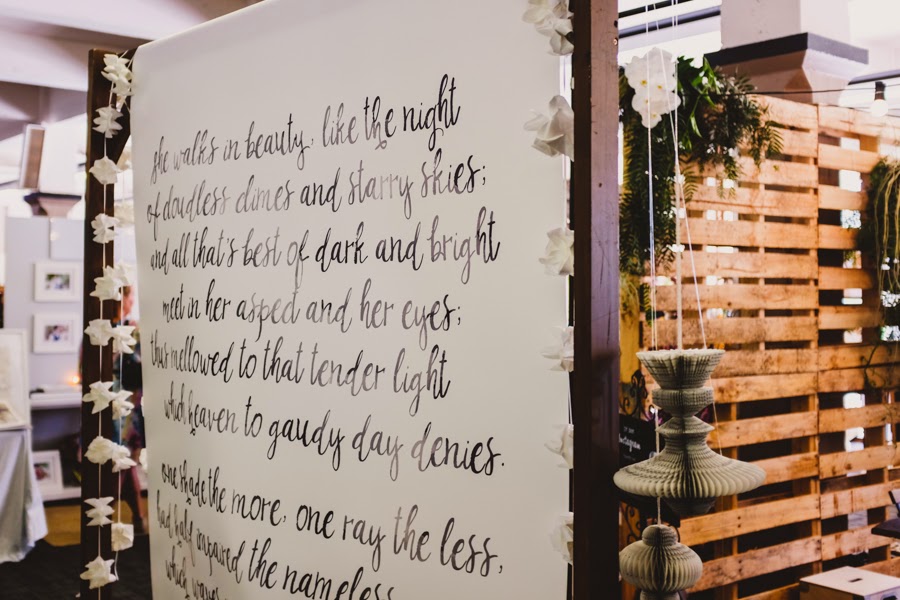 she walks in beauty, like the night
of cloudless climes and starry skies;
and all that's best of dark and bright
meet in her aspect and her eyes;
thus mellowed to that tender light
which heaven to gaudy day denies.
one shade the more, one ray the less,
had half impaired the nameless
which waves